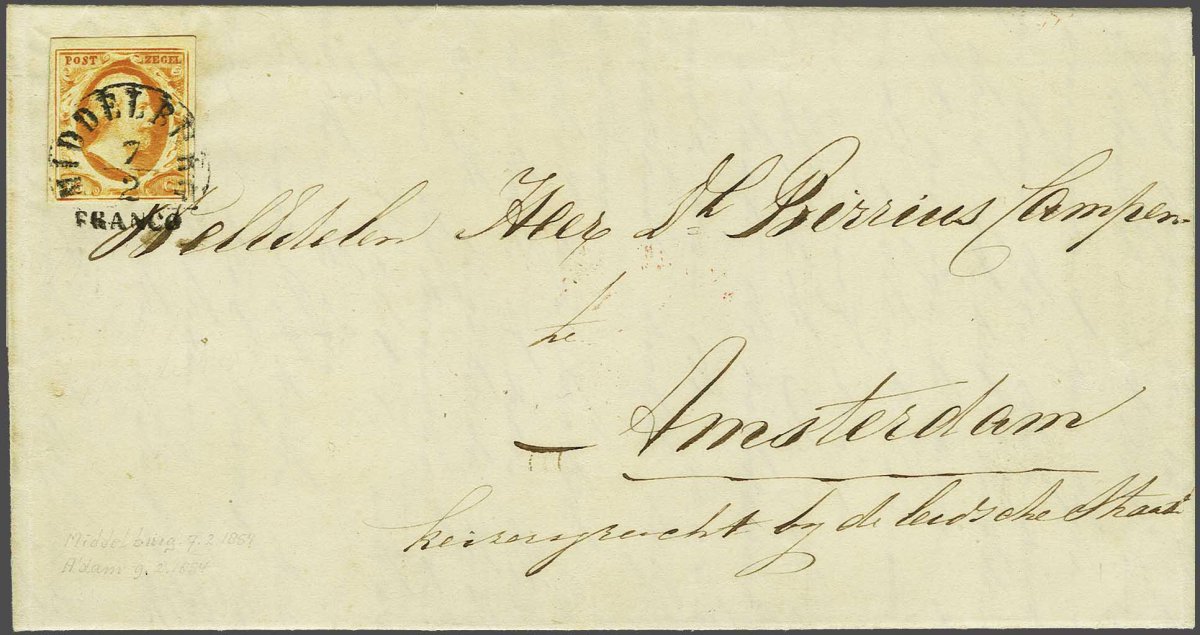 POST ZEGEL
MIDDELBURG
7
2
FRANCO
WelEdelen Heer Dk Birrius Campen
te
Amsterdam
keizersgracht by de leidsche Straat
Middelburg 7.2.1854
A'dam 9.2.1854